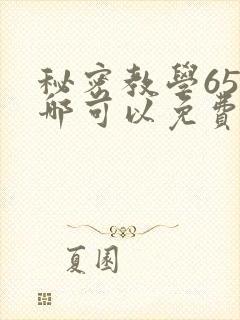 秘密教學65
哪可以免費
夏園